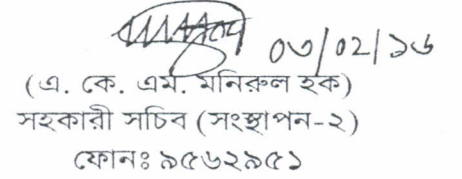 ০৩/০২/১৬
(এ. কে. এম. মনিরুল হক)
সহকারী সচিব (সংস্থাপন-২)
ফোনঃ ৯৫৬২৯৫১